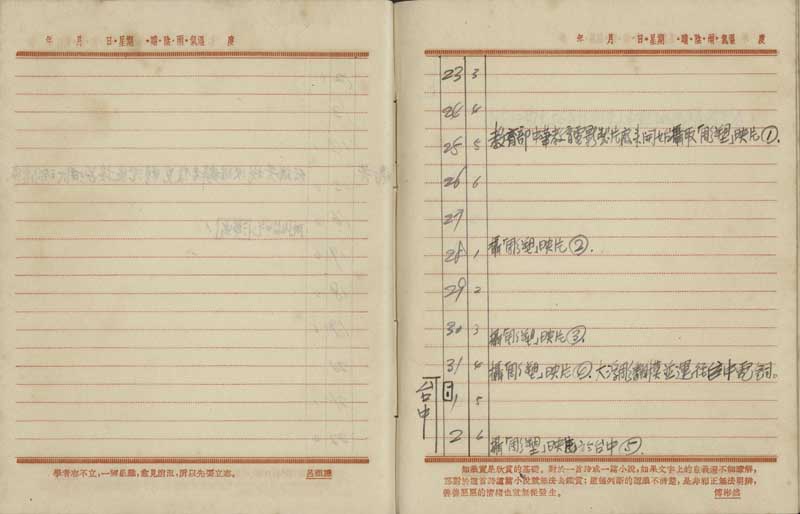 年 月 日•星期 •晴•陰•雨•氣溫 度
學者志不立，一經艱難，愈見消沮，所以先要立志。 呂祖謙
年 月 日•星期 •晴•陰•雨•氣溫 度
23 3
24 4
25 5 教育部中華教育電影製片廠來開始攝取「彫塑」映片①.
26 6
27
28 1 攝「彫塑」映片②.
29 2
30 3 攝「彫塑」映片③.
31 4 攝「彫塑」映片④.大浮彫翻模並運往台中
台中 1 5
2 6 攝「彫塑」映片於台中⑤.
知識實是欣賞的基礎。對於一首詩或一篇小說，如果文字上的意義還不細瞭解，
那對於這首詩這篇小說就無法去鑑賞；道德判斷的認識不清楚，是非邪正無法明辨，
善善惡惡的情緒也就無從發生。 傅彬然